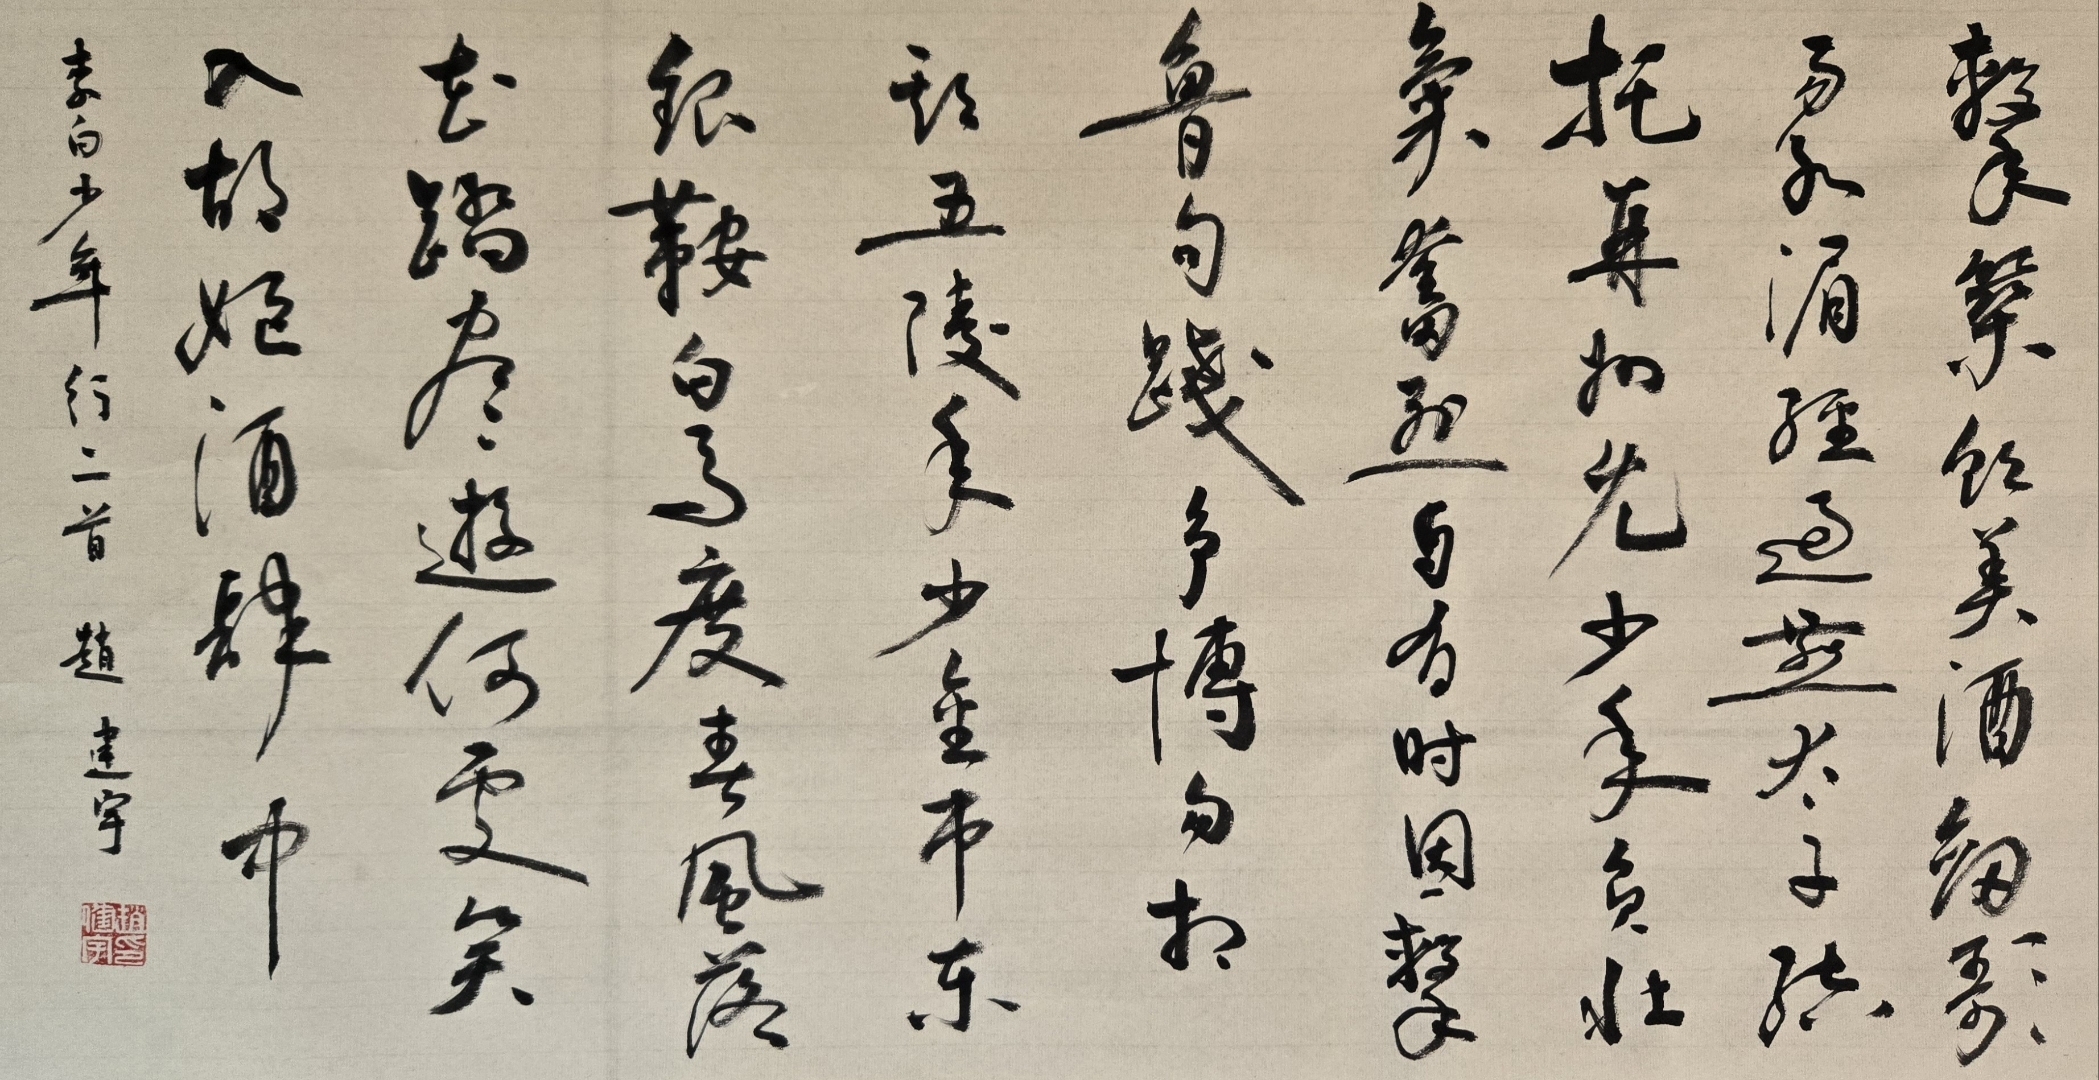 擊築飲美酒劒歌
易水湄經過燕太子結
托并州兒少年負壯
氣奮烈自有时因擊
魯句踐爭博勿相
欺五陵年少金市東
銀鞍白馬度春風落
花踏尽遊何處笑
入胡姬酒肆中
李白少年行二首 趙建宇
趙印建宇